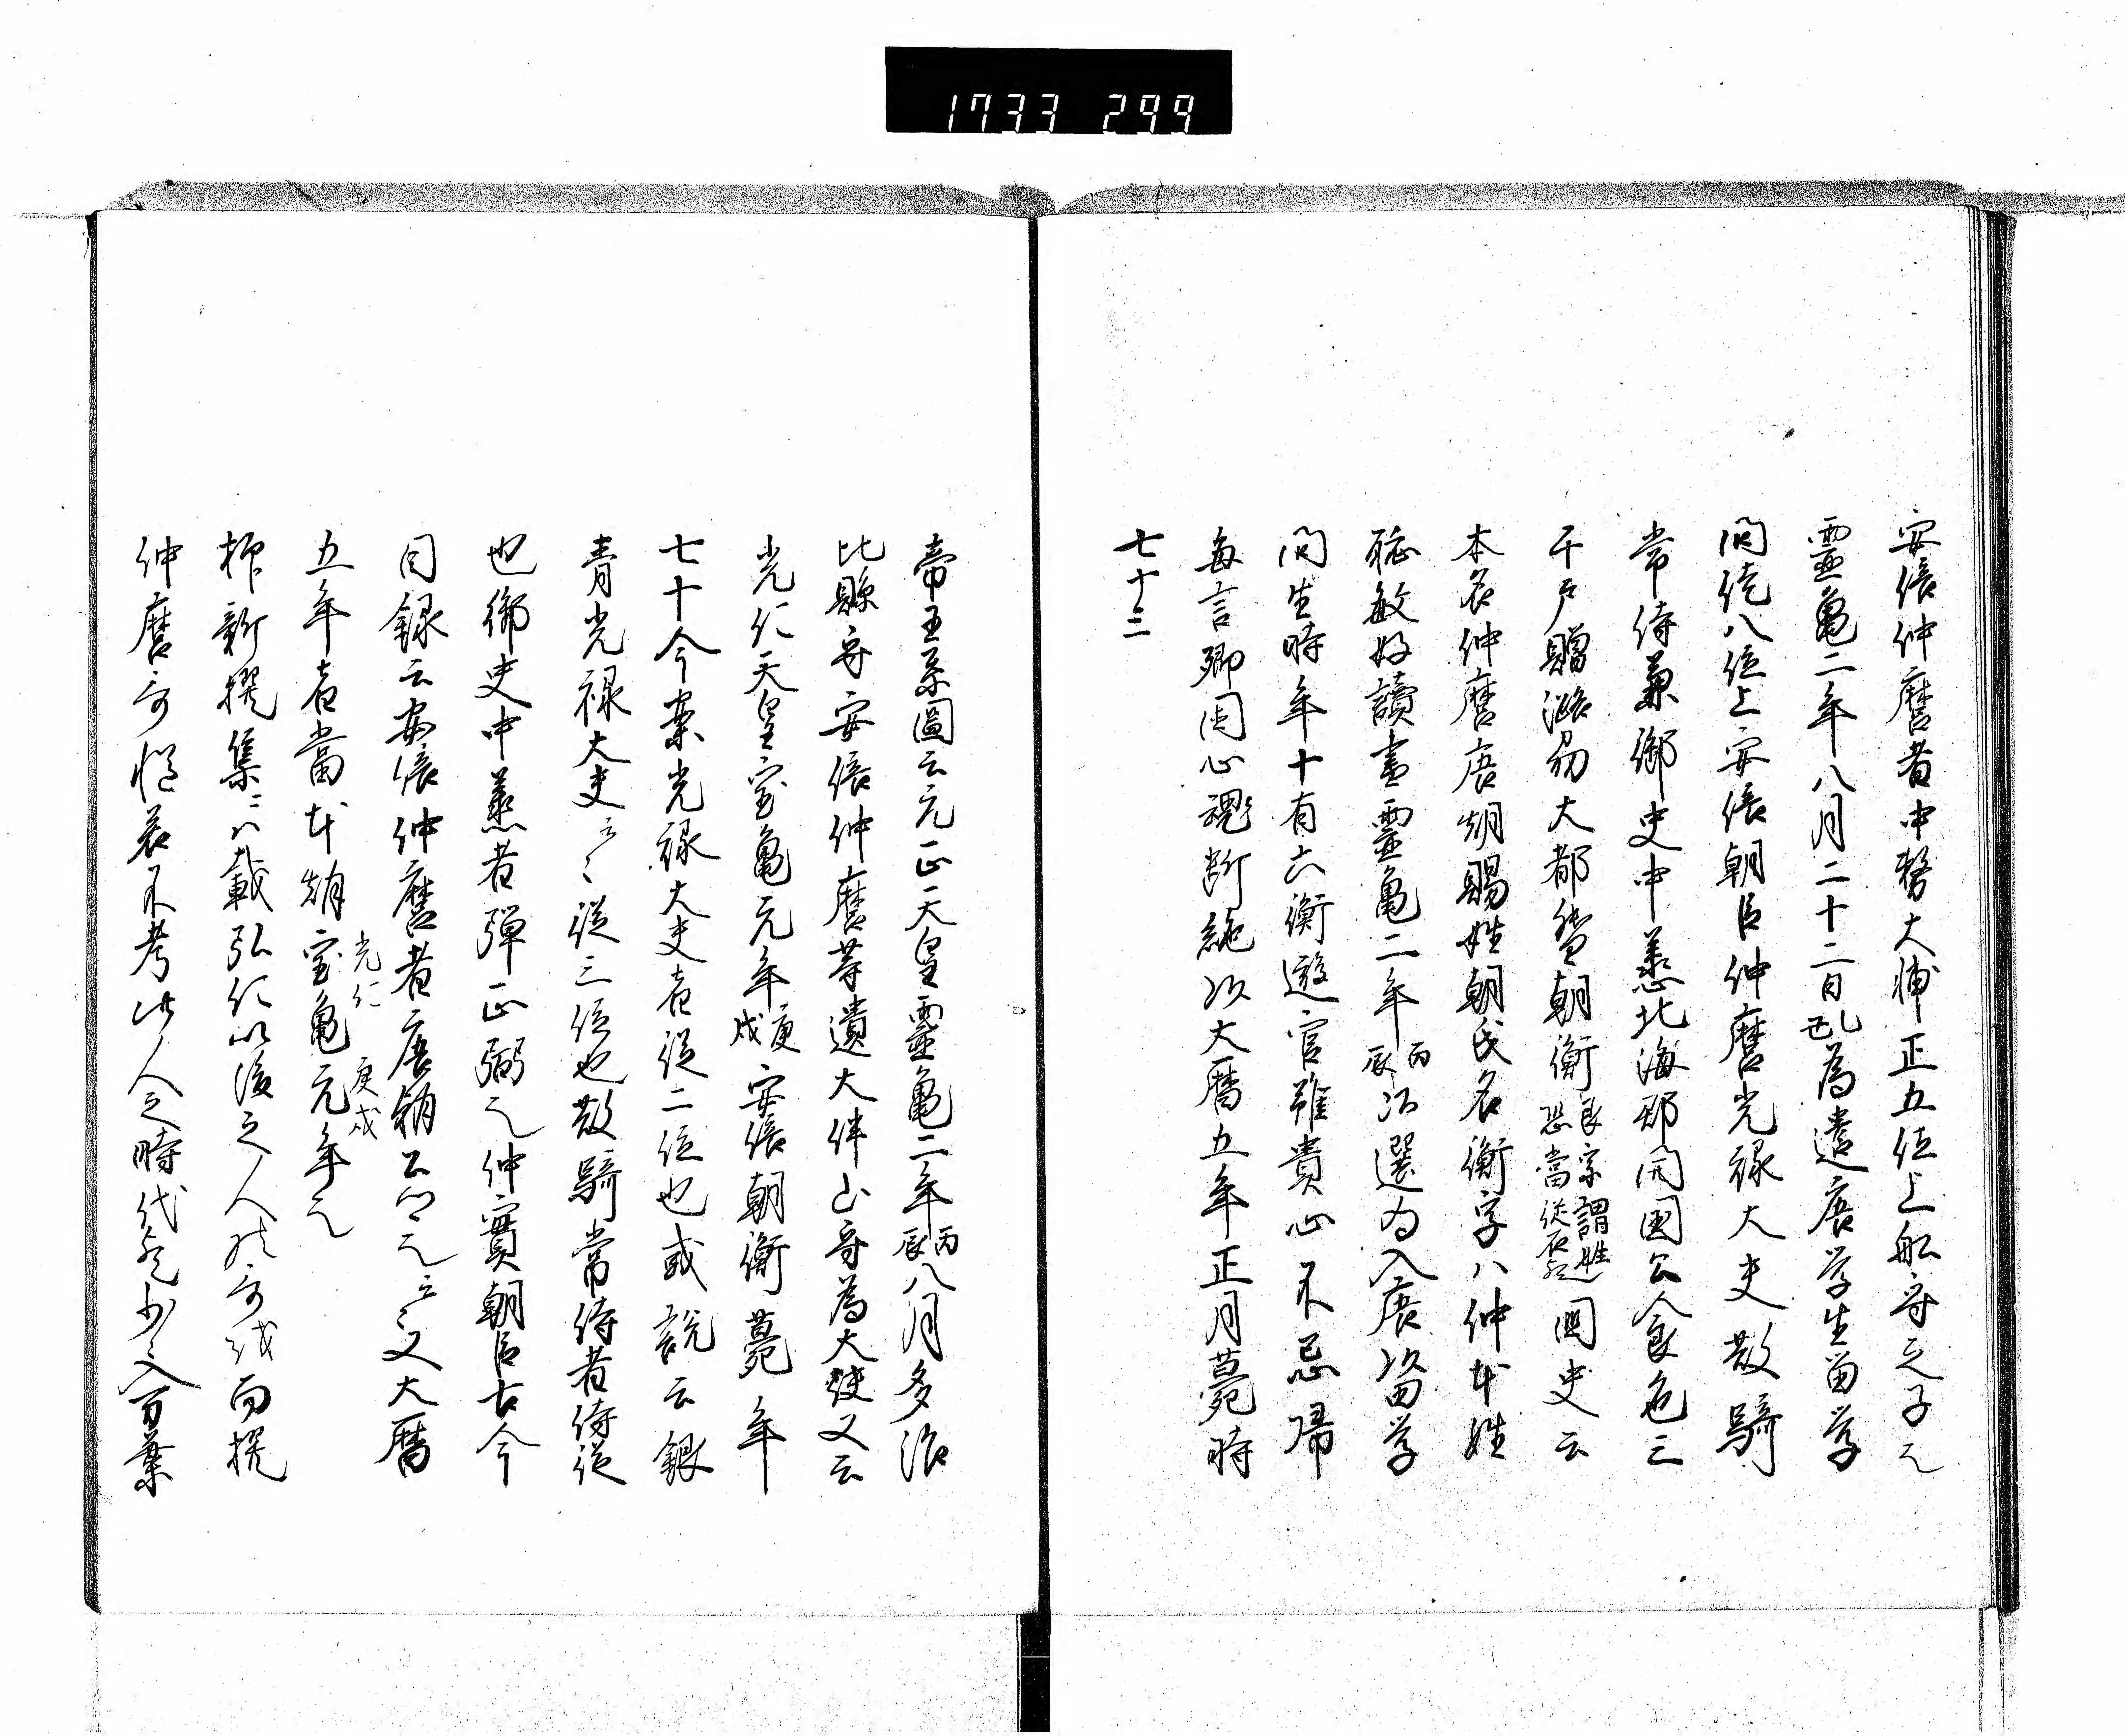 1733 299
安倍仲麿者中務大輔正五位上船守之子元
靈亀二年八月二十二日己乱為遣唐学生留学
問従八位上安倍朝臣仲麿光禄大夫散騎
常侍兼御史中丞北海郡開国公食邑三
千戸贈潞州大都督朝衡
良家謂姓
恐當従
国史云
本名仲麿唐朝賜姓朝氏名衡字八仲本姓
聡敏好讀書靈亀二年丙辰以選為入唐留学
問生時年十有六衡遊官雖貴心不忘帰
毎言郷国心魂断絶以大暦五年正月薨時
七十三
帝王系圖云元正天皇靈亀二年丙辰八月多治
比縣守安倍仲麿等遣大伴山守為大使又云
光仁天皇宝亀元年庚戌安倍朝衡薨年
七十今案光禄大夫者従二位也或説云銀
青光禄大夫云々従三位也散騎常侍者侍従
也御史中丞者弾正弼也仲實朝臣古今
目録云安倍仲麿者唐朝云々又大暦
五年者當本朝宝亀元年也
光仁
庚戌
抑新撰集ニハ載弘仁以後之人哥而撰
仲麿哥 不考此人之時代 入万葉